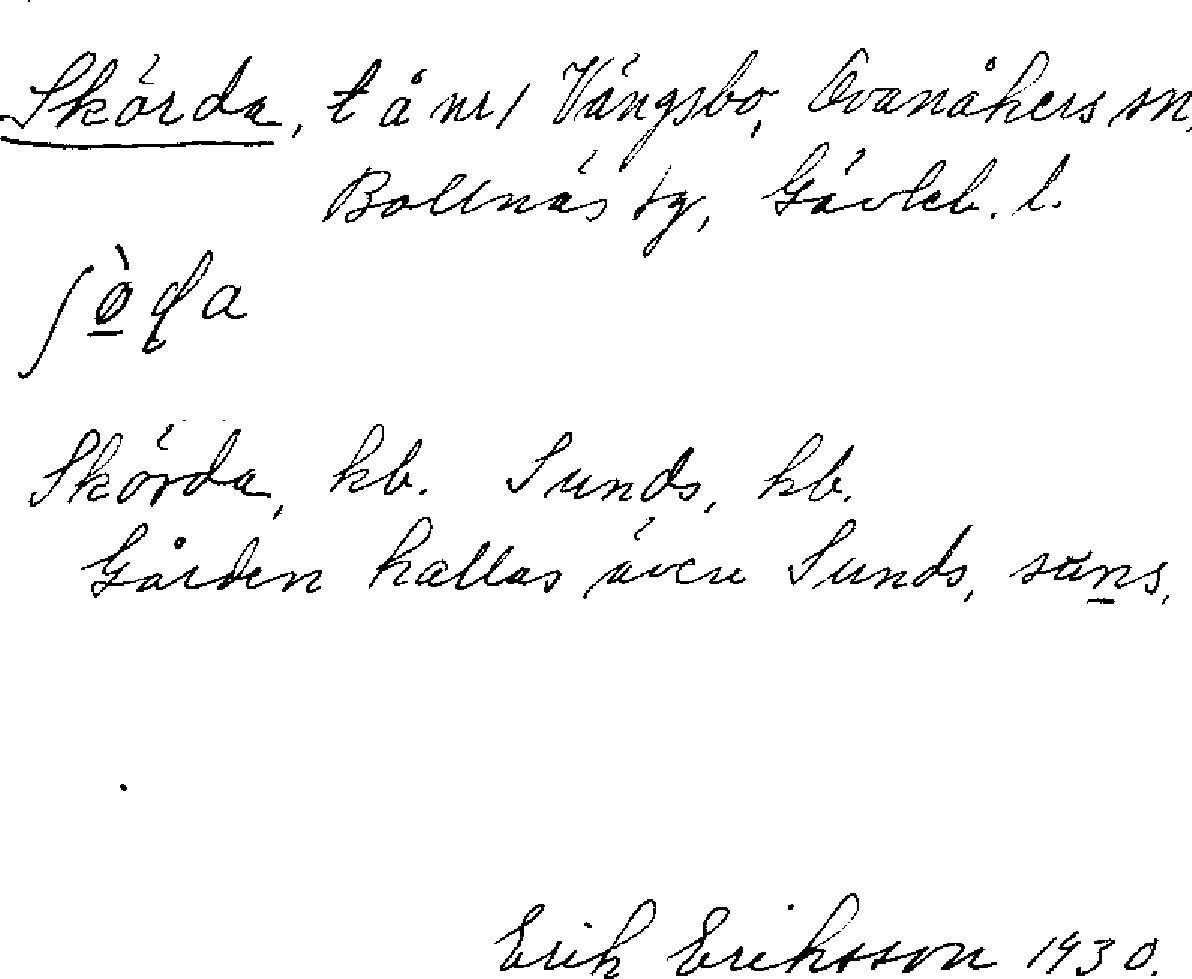 Skörda, t å nr 1 Vängsbo, Ovanåkers sn,
Bollnäs tg, Gävleb. l.
ʃö̀ɖa
Skörda, kb. Sunds, kb.
Gården kallas även Sunds, suns.
Erik Eriksson 1930.